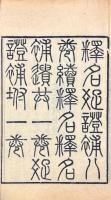 釋名疏證補八
卷續釋名釋名
補遺共一卷疏
證補坿一卷